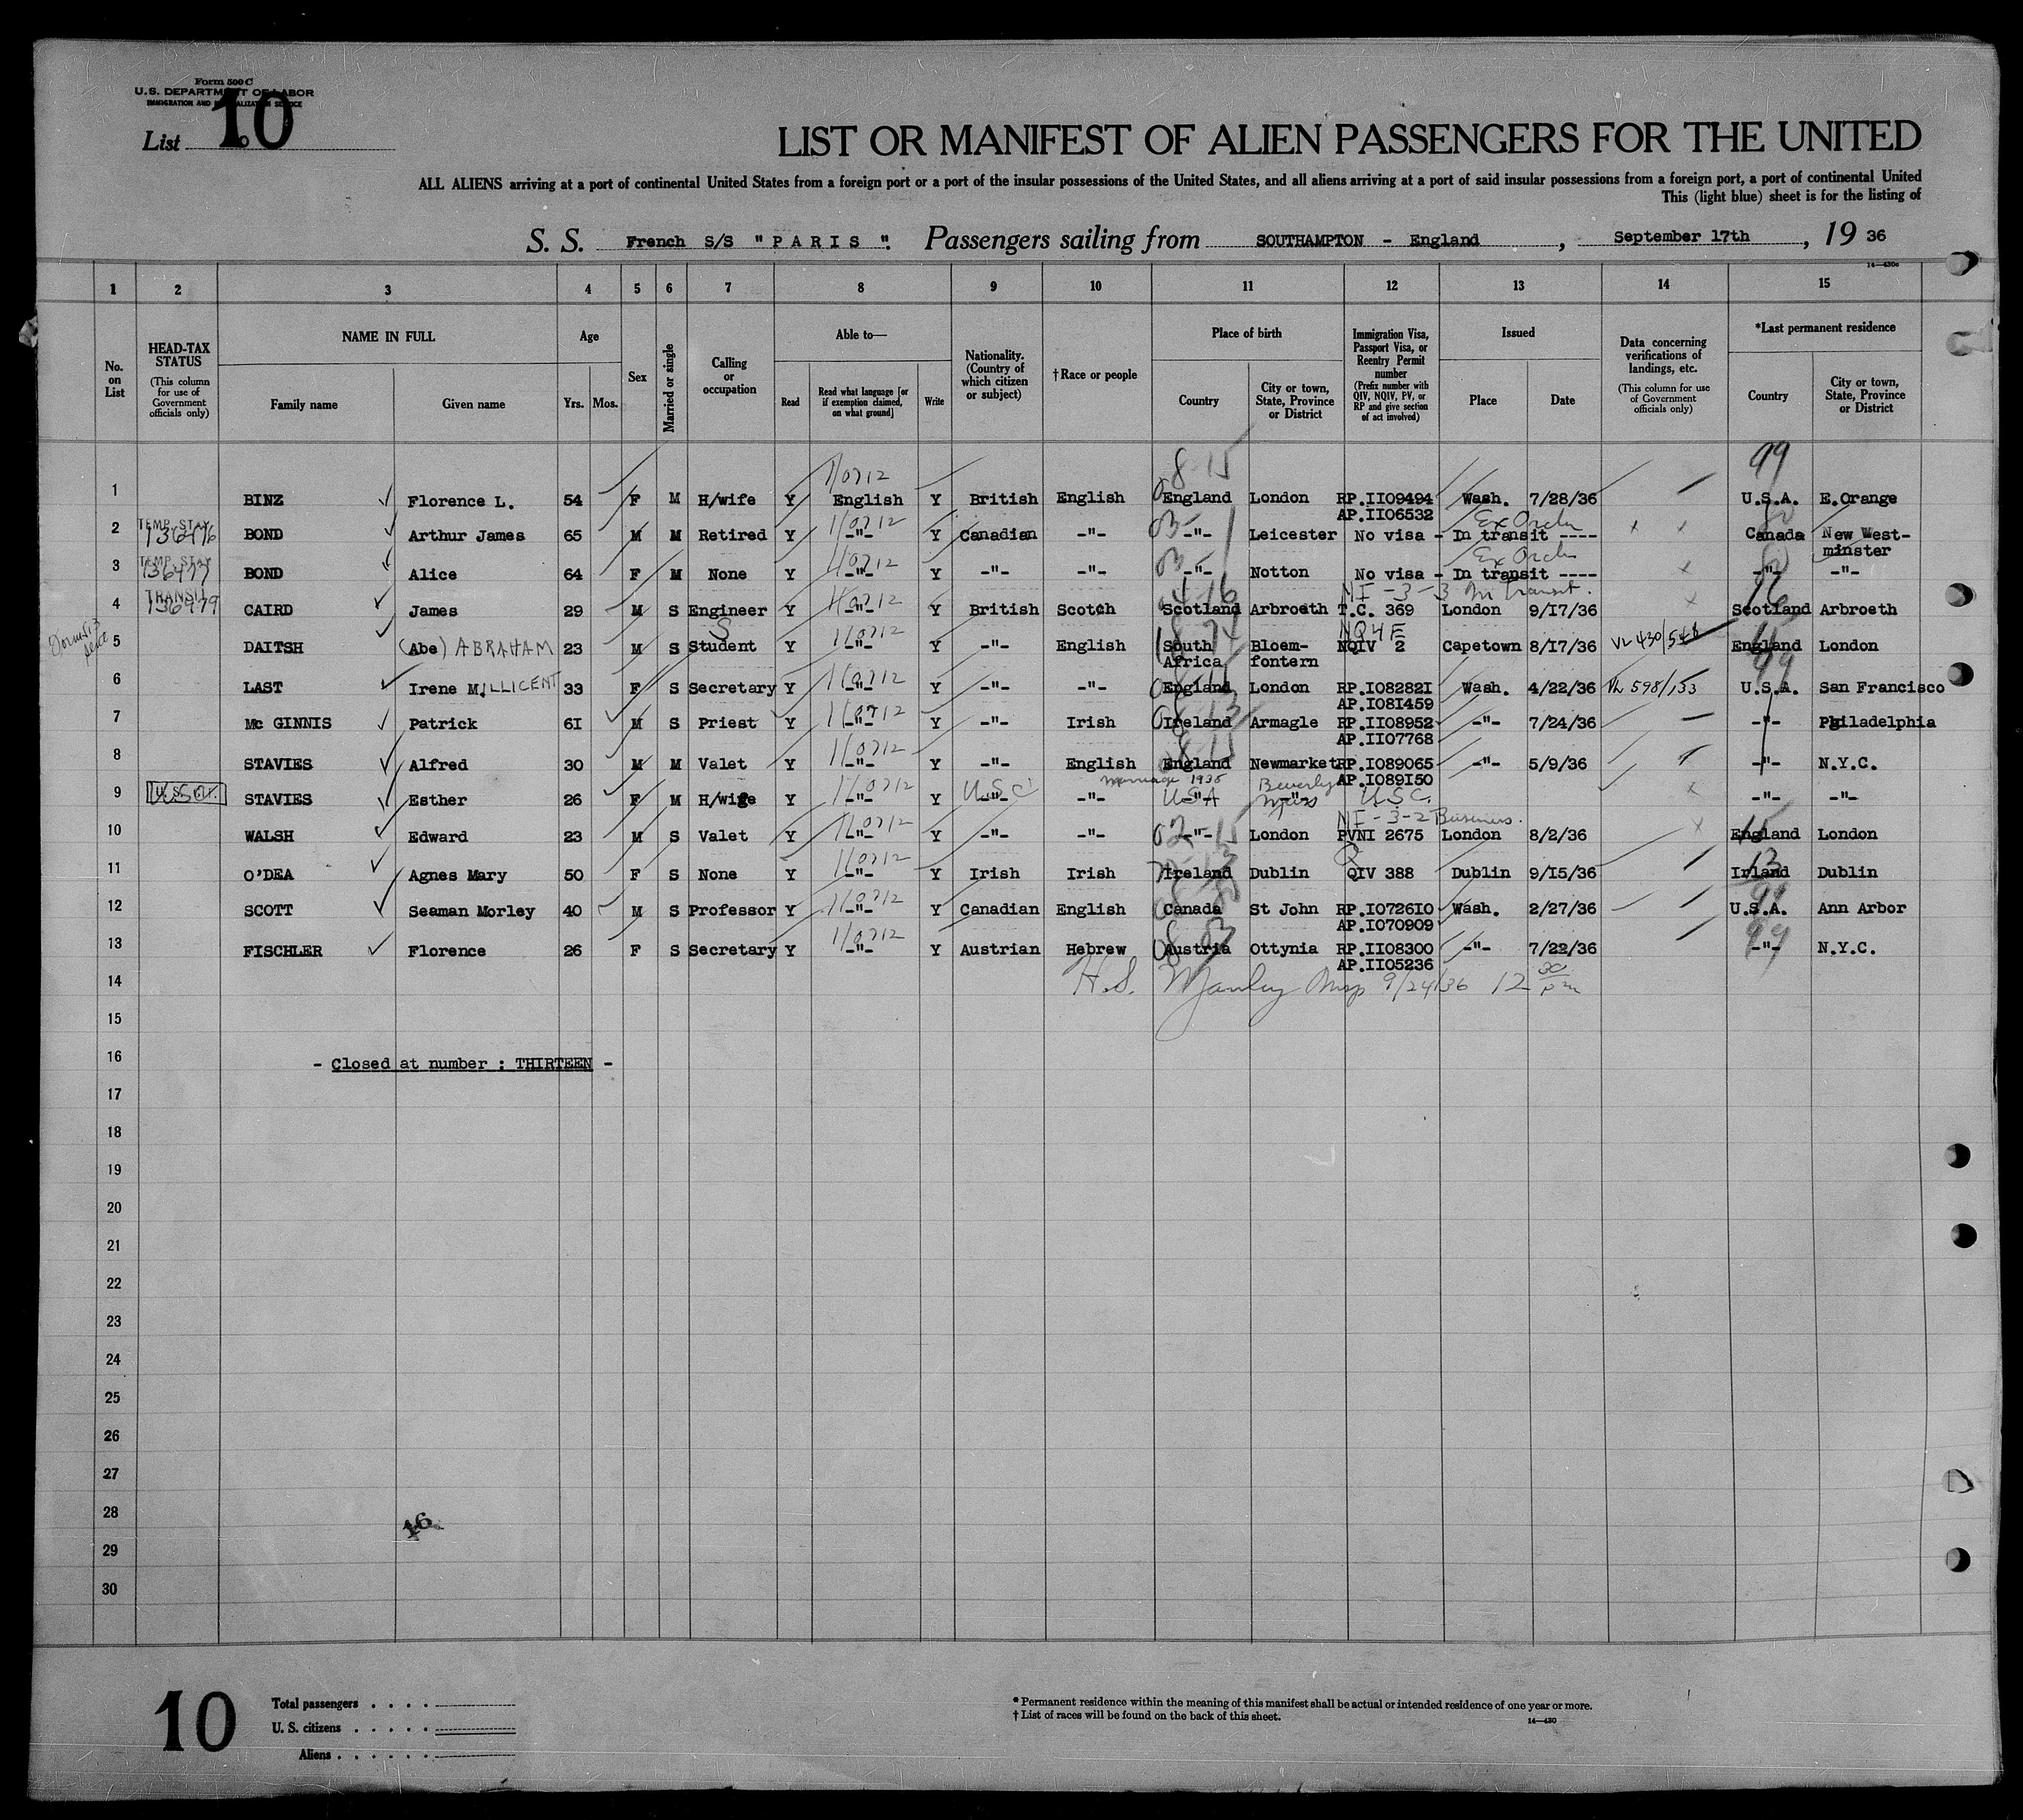 Form 500 C
U.S. DEPARTMENT OF LABOR
IMMIGRATION AND NATURALIZATION SERVICE
List 10
LIST OR MANIFEST OF ALIEN PASSENGERS FOR THE UNITED
ALL ALIENS arriving at a port of continental United States from a foreign port or a port of the insular possessions of the United States, and all aliens arriving at a port of said insular possessions from a foreign port, a port of continental United
This (light blue) sheet is for the listing of
S. S. French S/S "PARIS". Passengers sailing from SOUTHAMPTON - England, September 17th, 19 36
14—430c
1 2 3 4 5 6 7 8 9 10 11 12 13 14 15
No. on List
HEAD-TAX STATUS (This column for use of Government officials only)
NAME IN FULL
Family name
Given name
Age
Yrs. Mos.
Sex
Married or single
Calling or occupation
Able to—
Read
Read what language [or if exemption claimed, on what ground]
Write
Nationality. (Country of which citizen or subject)
†Race or people
Place of birth
Country
City or town, State, Province or District
Immigration Visa, Passport Visa, or Reentry Permit number (Prefix number with QIV, NQIV, PV, or RP and give section of act involved)
Issued
Place
Date
Data concerning verifications of landings, etc. (This column for use of Government officials only)
*Last permanent residence
Country
City or town, State, Province or District
8-15 99
1 BINZ Florence L. 54 F M H/wife Y English Y British English England London RP.IIO9494 Wash. 7/28/36 U.S.A. E.Orange
AP.IIO6532
TEMP. STAY Ex Order
2 136476 BOND Arthur James 65 M M Retired Y -"- Y Canadian -"- -"- Leicester No visa - In transit ---- Canada New West-
minster
TEMP. STAY Ex Order
3 136477 BOND Alice 64 F M None Y -"- Y -"- -"- -"- Notton No visa - In transit ---- -"- -"-
TRANSIT 4-16 NI-3-3 In transit. 16
4 136479 CAIRD James 29 M S Engineer Y -"- Y British Scotch Scotland Arbroath T.C. 369 London 9/17/36 Scotland Arbroeth
5 DAITSH (Abe) ABRAHAM 23 M S Student Y -"- Y -"- English South Bloem- NQIV 2 Capetown 8/17/36 VL 430/548 England London
Africa fontern
6 LAST Irene M.ILLICENT 33 F S Secretary Y -"- Y -"- -"- England London RP.IO8282I Wash. 4/22/36 VL 598/153 U.S.A. San Francisco
AP.IO8I459
7 Mc GINNIS Patrick 6I M S Priest Y -"- Y -"- Irish Ireland Armagle RP.IIO8952 -"- 7/24/36 -"- Philadelphia
AP.IIO7768
8 STAVIES Alfred 30 M M Valet Y -"- Y -"- English England Newmarket RP.IO89065 -"- 5/9/36 -"- N.Y.C.
AP.IO89I50
Marriage 1935 Beverly
9 U.S.C. STAVIES Esther 26 F M H/wife Y -"- Y -"- U.S.C. -"- USA -"- Mass U.S.C. -"- -"-
NI-3-2 Business.
10 WALSH Edward 23 M S Valet Y -"- Y -"- -"- -"- London PVNI 2675 London 8/2/36 England London
11 O'DEA Agnes Mary 50 F S None Y -"- Y Irish Irish Ireland Dublin QIV 388 Dublin 9/15/36 Irland Dublin
12 SCOTT Seaman Morley 40 M S Professor Y -"- Y Canadian English Canada St John RP.IO726IO Wash. 2/27/36 U.S.A. Ann Arbor
AP.IO70909
13 FISCHLER Florence 26 F S Secretary Y -"- Y Austrian Hebrew Austria Ottynia RP.IIO8300 -"- 7/22/36 -"- N.Y.C.
AP.IIO5236
14 H.S. Manley Insp 9/24/36 12 30 pm
15
16 - Closed at number : THIRTEEN -
17
18
19
20
21
22
23
24
25
26
27
28
16
29
30
10
Total passengers
U. S. citizens
Aliens
* Permanent residence within the meaning of this manifest shall be actual or intended residence of one year or more.
† List of races will be found on the back of this sheet.
14—430